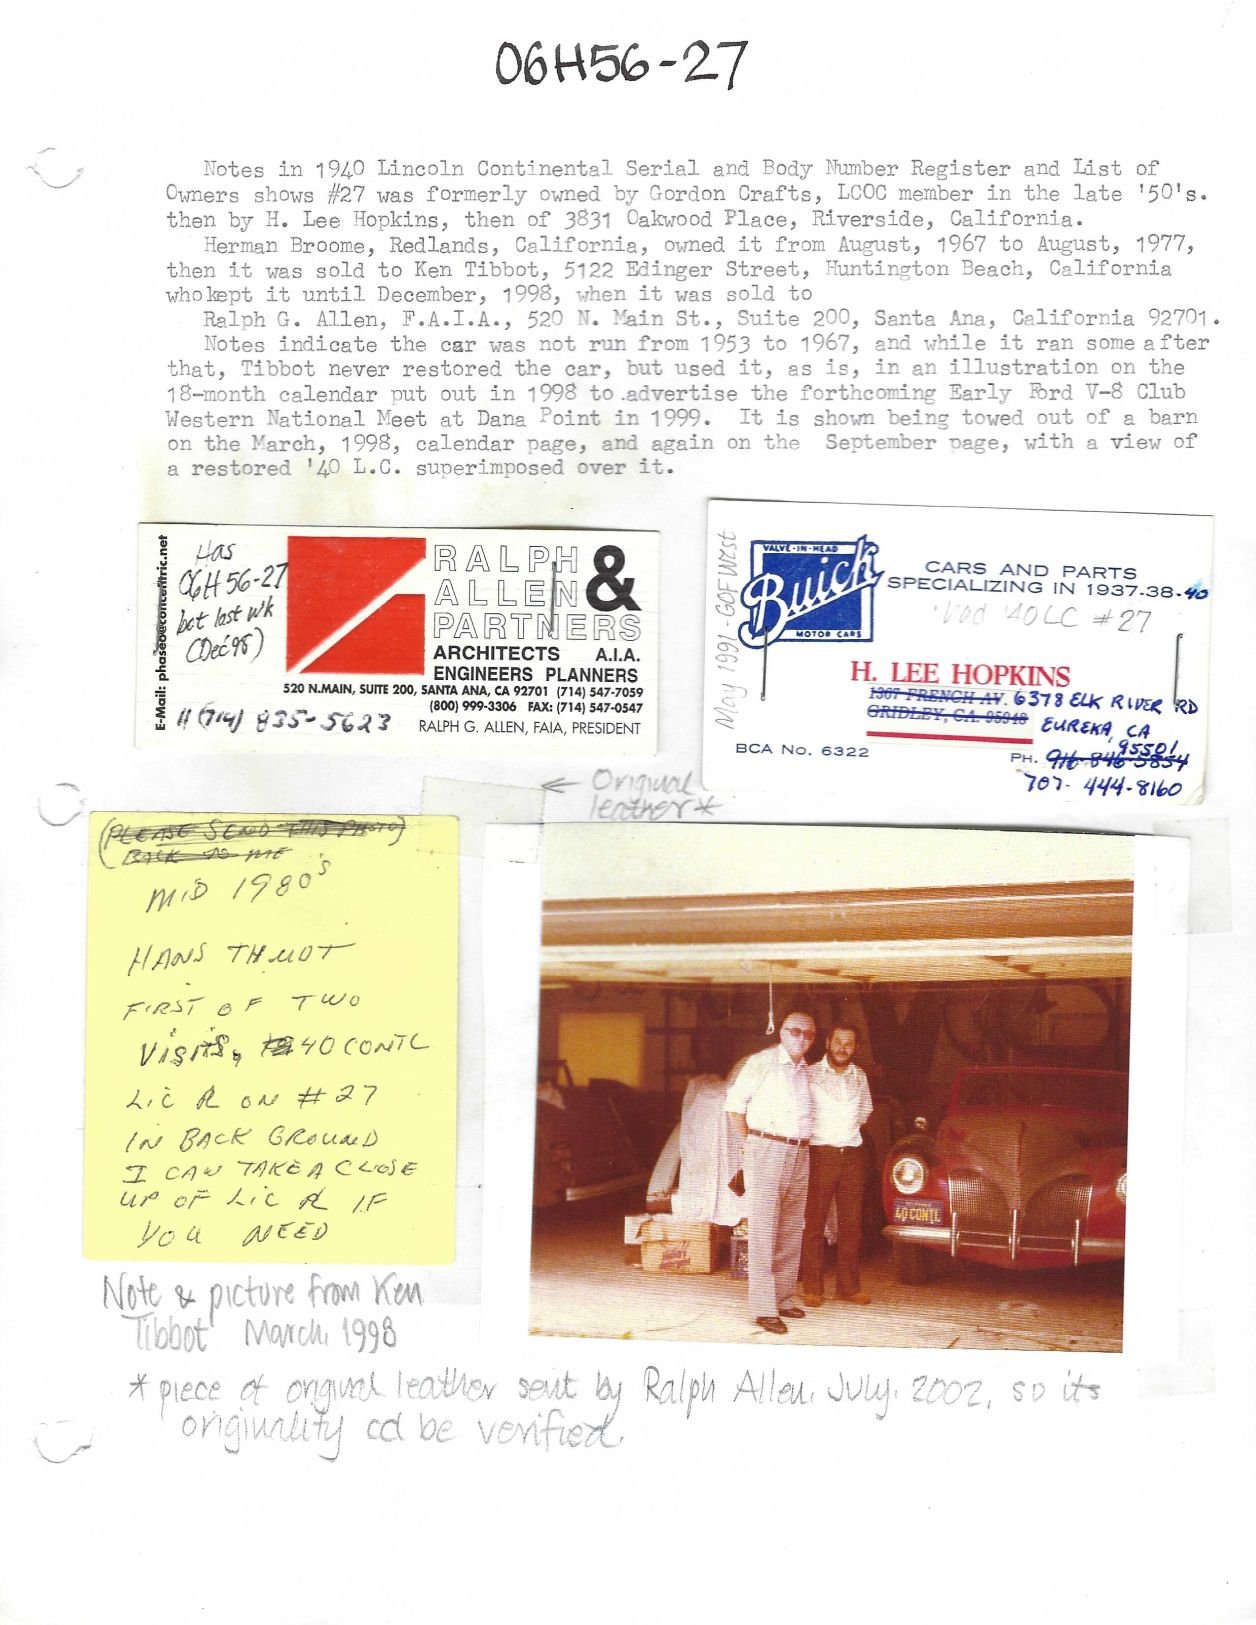 06H56-27
Notes in 1940 Lincoln Continental Serial and Body Number Register and List of
Owners shows #27 was formerly owned by Gordon Crafts, LCOC member in the late '50's.
then by H. Lee Hopkins, then of 3831 Oakwood Place, Riverside, California.
Herman Broome, Redlands, California, owned it from August, 1967 to August, 1977,
then it was sold to Ken Tibbot, 5122 Edinger Street, Huntington Beach, California
who kept it until December, 1998, when it was sold to
Ralph G. Allen, F.A.I.A., 520 N. Main St., Suite 200, Santa Ana, California 92701.
Notes indicate the car was not run from 1953 to 1967, and while it ran some after
that, Tibbot never restored the car, but used it, as is, in an illustration on the
18-month calendar put out in 1998 to .advertise the forthcoming Early Ford V-8 Club
Western National Meet at Dana Point in 1999. It is shown being towed out of a barn
on the March, 1998, calendar page, and again on the September page, with a view of
a restored '40 L.C. superimposed over it.
E-Mail: phase@concentric.net
Has
06H56-27
bot last wk
(Dec '98)
H (714) 835-5623
RALPH &
ALLEN
PARTNERS
ARCHITECTS A.I.A.
ENGINEERS PLANNERS
520 N.MAIN, SUITE 200, SANTA ANA, CA 92701 (714) 547-7059
(800) 999-3306 FAX: (714) 547-0547
RALPH G. ALLEN, FAIA, PRESIDENT
May 1991 - GOF West
VALVE-IN-HEAD
Buick
MOTOR CARS
CARS AND PARTS
SPECIALIZING IN 1937-38-40
had '40 LC #27
H. LEE HOPKINS
1367 FRENCH AV. 6378 ELK RIVER RD
GRIDLEY, CA. 95948 EUREKA, CA
95501
BCA No. 6322
PH. 916-846-5854
707-444-8160
← Original
leather*
(PLEASE SEND THIS PHOTO)
(BACK TO ME
MID 1980'S
HANS THUOT
FIRST OF TWO
VISITS, 40 CONTL
LIC R ON #27
IN BACK GROUND
I CAN TAKE A CLOSE
UP OF LIC R IF
YOU NEED
40 CONTL
Note & picture from Ken
Tibbot March, 1998
* piece of original leather sent by Ralph Allen, July, 2002, so its
originality cd be verified.